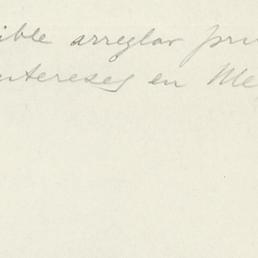 ible arreglar pri
intereses en Me